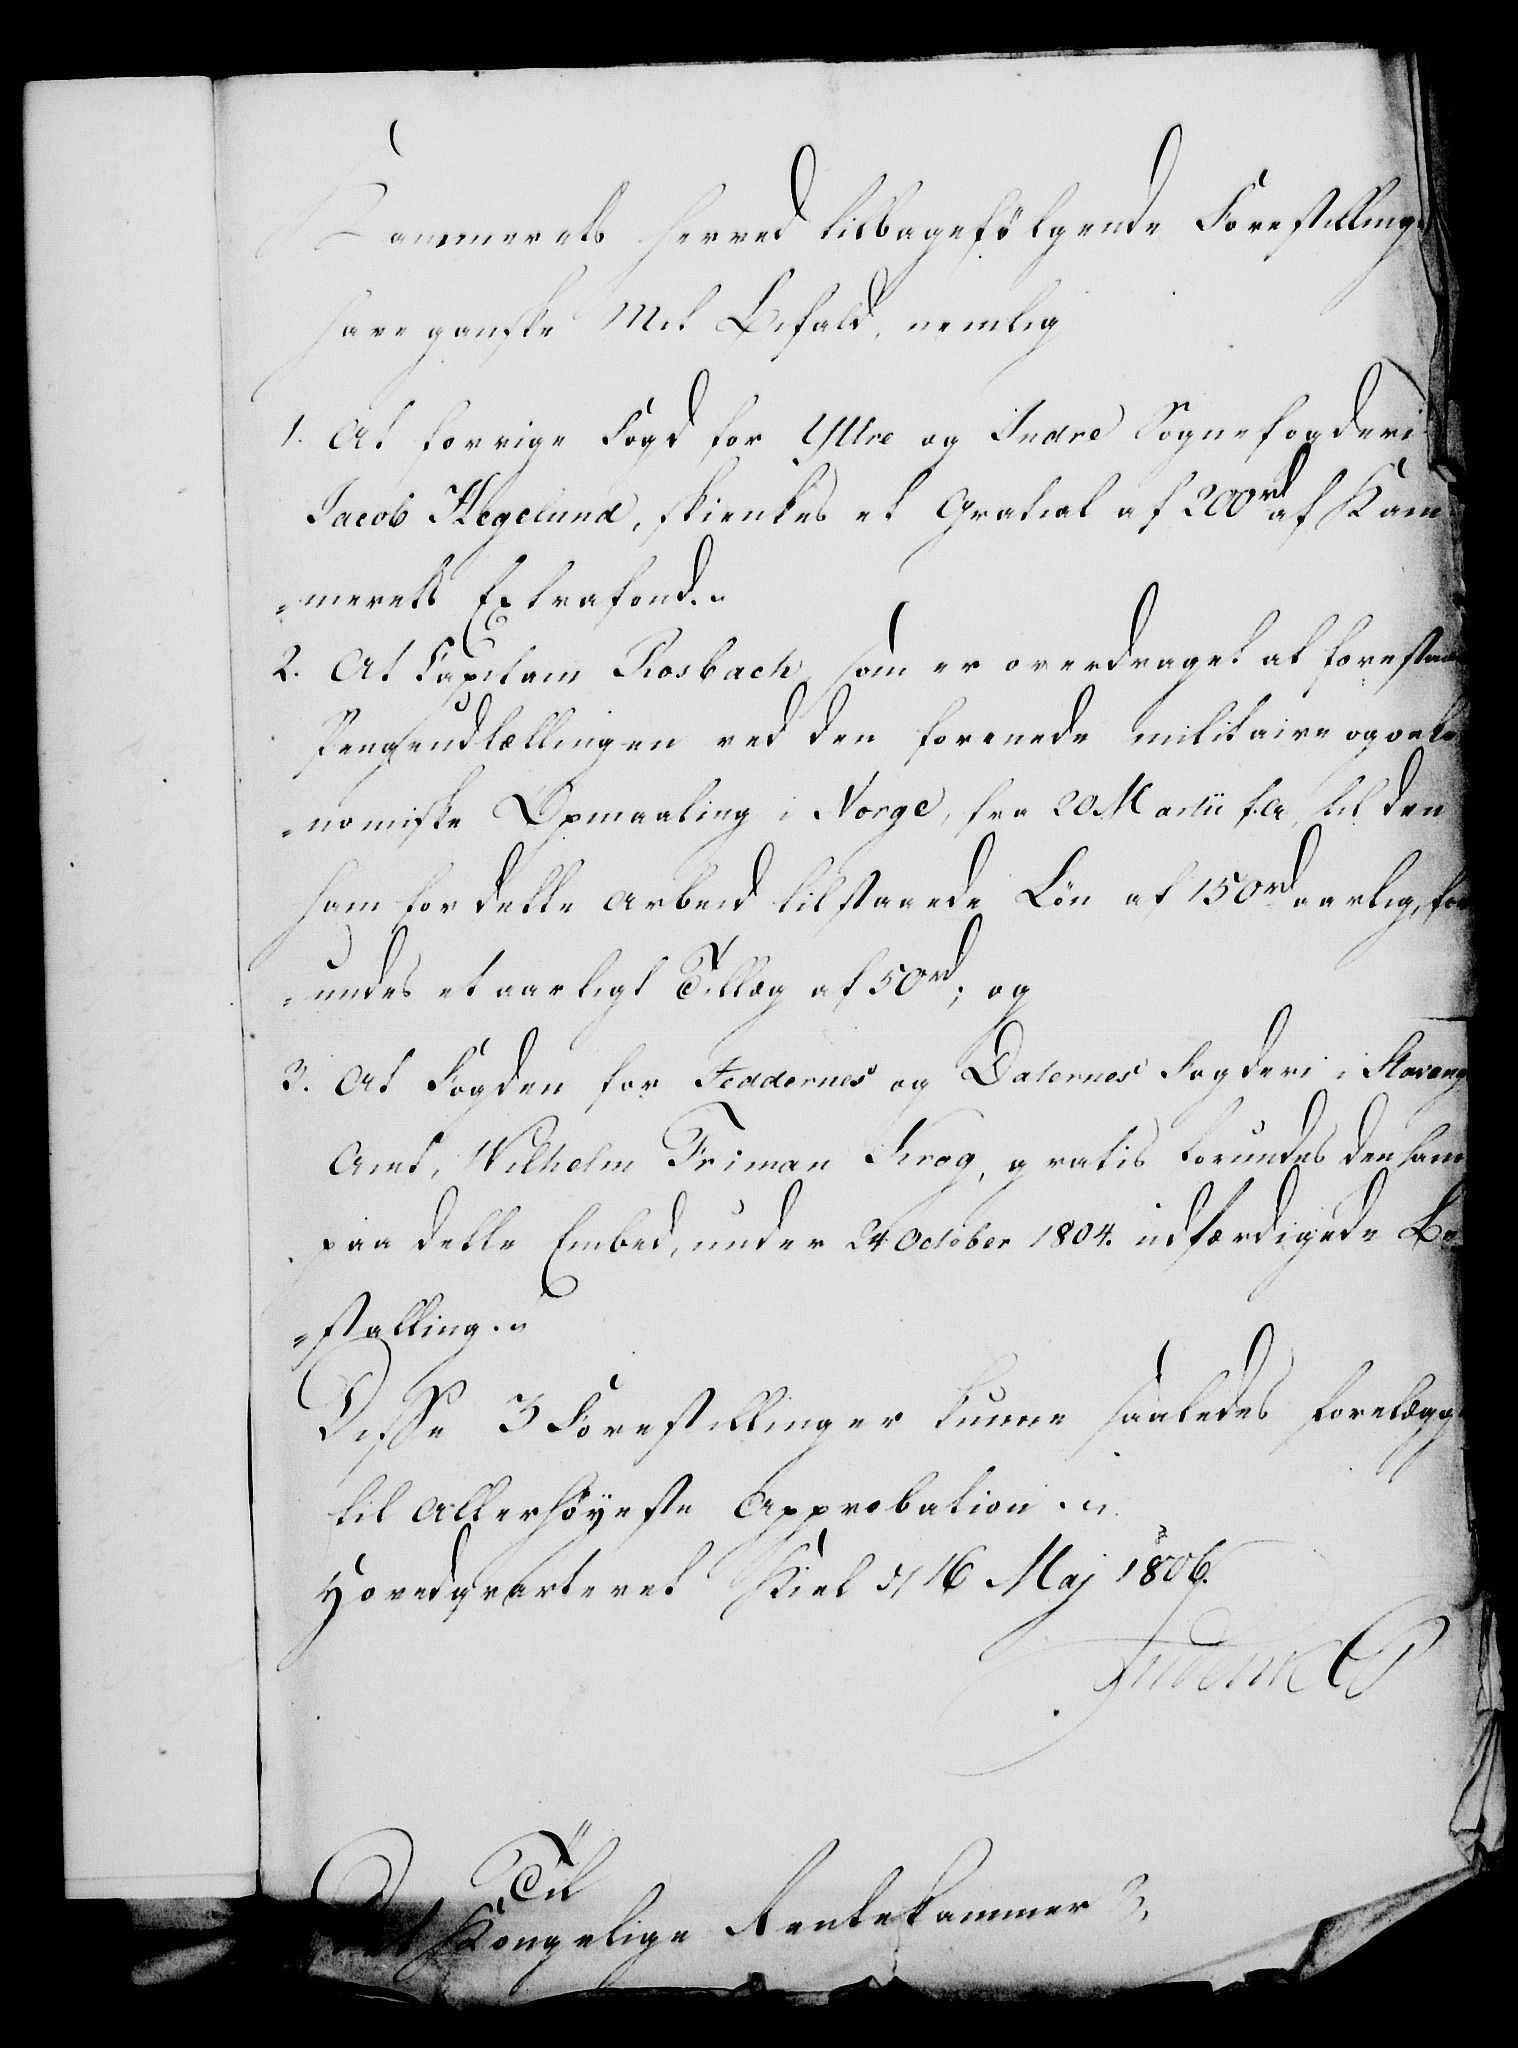 Kammerets herved tilbagefølgende Forestillinge
have ganske Mit Bifald, nemlig
1. At forrige Fogd for Yttre og Indre Sognefogderi
Jacob Hegelund, skienkes et Gratial af 200rd af Kam
=merets Extrafond.
2. At Capitain Rosbach, som er overdraget at forestaae
Pengeudtællingen ved den forenede militaire og oeko
=nomiske Opmaaling i Norge, fra 20 Martii f.A. til den
ham for dette Arbeid tilstaaede Løn af 150rd aarlig, for
=undes et aarligt Tillæg af 50rd; og
3. At Fogden for Jeddernes og Dalernes Fogderi i Stavang
Amt, Wilhelm Friman Krog, gratis forundes den ham
paa dette Embed, under 24 October 1804. udfærdigede Be
=stalling.
Disse 3 Forestillinger kunne saaledes forelægg
til Allerhøyeste Approbation.
Hovedqvarteret Kiel d 16 Maj 1806.
Friderik CP
Til
Det Kongelige Rentekammer